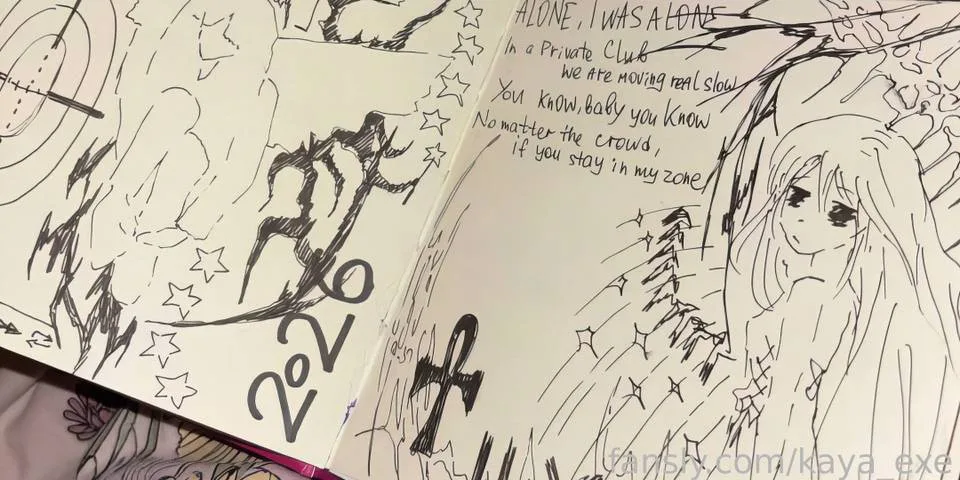 2026
ALONE, I WAS ALONE
In a Private Club
We Are moving real slow
You know, baby you know
No matter the crowd,
if you stay in my zone
fansly.com/kaya_exe